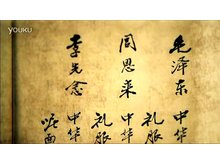 YOUKU
毛泽东 中华
礼服
周恩来 中华
礼服
李先念 中华
呢面